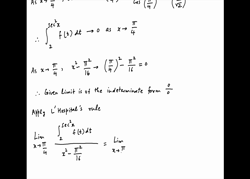 As x → π/4 , Cos (π/4) (1/√2)
∴ ∫₂^{sec²x} f(t) dt → 0 as x → π/4
As x → π/4 , x² - π²/16 → (π/4)² - π²/16 = 0
∴ Given Limit is of the indeterminate form 0/0
Apply L' Hospital's rule
Lim x→π/4 ∫₂^{sec²x} f(t) dt / x² - π²/16 = Lim x→π